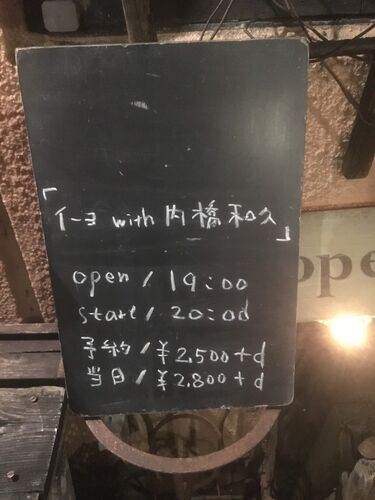 「イーヨ with 内橋和久」
open / 19:00
ope
start / 20:00
予約 / ¥2,500+d
当日 / ¥2,800+d